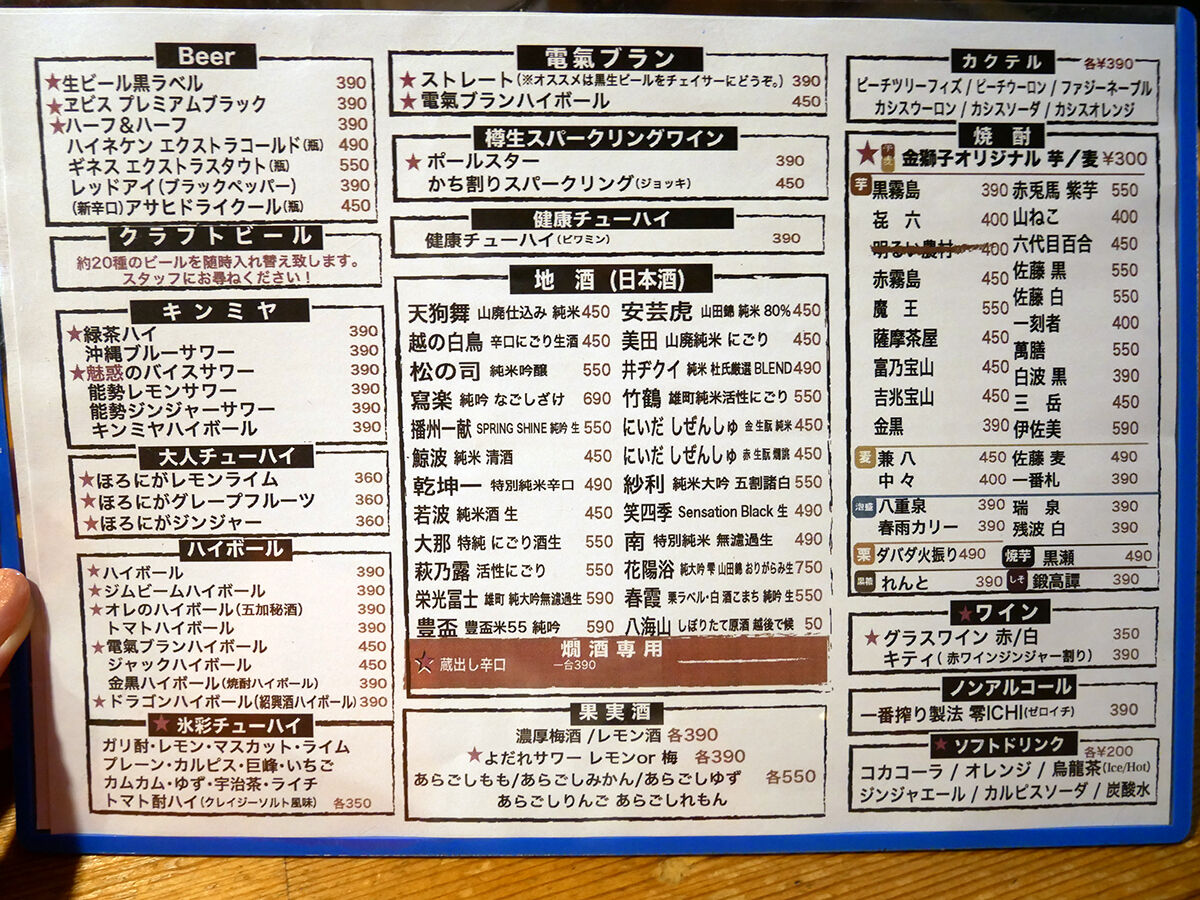 Beer
★生ビール黒ラベル 390
★ヱビス プレミアムブラック 390
★ハーフ&ハーフ 390
ハイネケン エクストラコールド(瓶) 490
ギネス エクストラスタウト(瓶) 550
レッドアイ(ブラックペッパー) 390
(新辛口)アサヒドライクール(瓶) 450
クラフトビール
約20種のビールを随時入れ替え致します。
スタッフにお尋ねください!
キンミヤ
★緑茶ハイ 390
沖縄ブルーサワー 390
★魅惑のバイスサワー 390
能勢レモンサワー 390
能勢ジンジャーサワー 390
キンミヤハイボール 390
大人チューハイ
★ほろにがレモンライム 360
★ほろにがグレープフルーツ 360
★ほろにがジンジャー 360
ハイボール
★ハイボール 390
★ジムビームハイボール 390
★オレのハイボール(五加秘酒) 390
トマトハイボール 390
★電氣ブランハイボール 450
ジャックハイボール 450
金黒ハイボール(焼酎ハイボール) 390
★ドラゴンハイボール(紹興酒ハイボール) 390
★氷彩チューハイ
ガリ酎・レモン・マスカット・ライム
プレーン・カルピス・巨峰・いちご
カムカム・ゆず・宇治茶・ライチ
トマト酎ハイ(クレイジーソルト風味) 各350
電氣ブラン
★ストレート(※オススメは黒生ビールをチェイサーにどうぞ。) 390
★電氣ブランハイボール 450
樽生スパークリングワイン
★ポールスター 390
かち割りスパークリング(ジョッキ) 450
健康チューハイ
健康チューハイ(ビワミン) 390
地 酒 (日本酒)
天狗舞 山廃仕込み 純米 450 安芸虎 山田錦 純米 80% 450
越の白鳥 辛口にごり生酒 450 美田 山廃純米 にごり 450
松の司 純米吟醸 550 井ヂケイ 純米 杜氏厳選 BLEND 490
寫楽 純吟 なごしざけ 690 竹鶴 雄町純米活性にごり 550
播州一献 SPRING SHINE 純吟 生 550 にいだ しぜんしゅ 金 生酛 純米 450
鯨波 純米 清酒 450 にいだ しぜんしゅ 赤 生酛 燗誂 450
乾坤一 特別純米辛口 490 紗利 純米大吟 五割諸白 550
若波 純米酒 生 450 笑四季 Sensation Black 生 490
大那 特純 にごり酒生 550 南 特別純米 無濾過生 490
萩乃露 活性にごり 550 花陽浴 純大吟 雫 山田錦 おりがらみ生 750
栄光冨士 雄町 純大吟無濾過生 590 春霞 栗ラベル・白 酒こまち 純吟 生 550
豊盃 豊盃米55 純吟 590 八海山 しぼりたて原酒 越後で候 50
燗酒専用
☆蔵出し辛口 一合390
果実酒
濃厚梅酒 /レモン酒 各390
★よだれサワー レモンor 梅 各390
あらごしもも/あらごしみかん/あらごしゆず 各550
あらごしりんご あらごしれもん
カクテル 各¥390
ピーチツリーフィズ / ピーチウーロン / ファジーネーブル
カシスウーロン / カシスソーダ / カシスオレンジ
焼 酎
★芋麦 金獅子オリジナル 芋/麦 ¥300
芋 黒霧島 390 赤兎馬 紫芋 550
㐂 六 400 山ねこ 400
明るい農村 400 六代目百合 450
赤霧島 450 佐藤 黒 550
魔 王 550 佐藤 白 550
薩摩茶屋 450 一刻者 400
富乃宝山 450 萬膳 550
吉兆宝山 450 白波 黒 390
金黒 390 三 岳 450
伊佐美 590
麦 兼 八 450 佐藤 麦 490
中 々 400 一番札 390
泡盛 八重泉 390 瑞 泉 390
春雨カリー 390 残波 白 390
栗 ダバダ火振り 490 焼芋 黒瀬 490
黒糖 れんと 390 しそ 鍛高譚 390
★ワイン
★グラスワイン 赤/白 350
キティ( 赤ワインジンジャー割り) 390
ノンアルコール
一番搾り製法 零ICHI(ゼロイチ) 390
★ソフトドリンク 各¥200
コカコーラ / オレンジ / 烏龍茶(Ice/Hot)
ジンジャエール / カルピスソーダ / 炭酸水